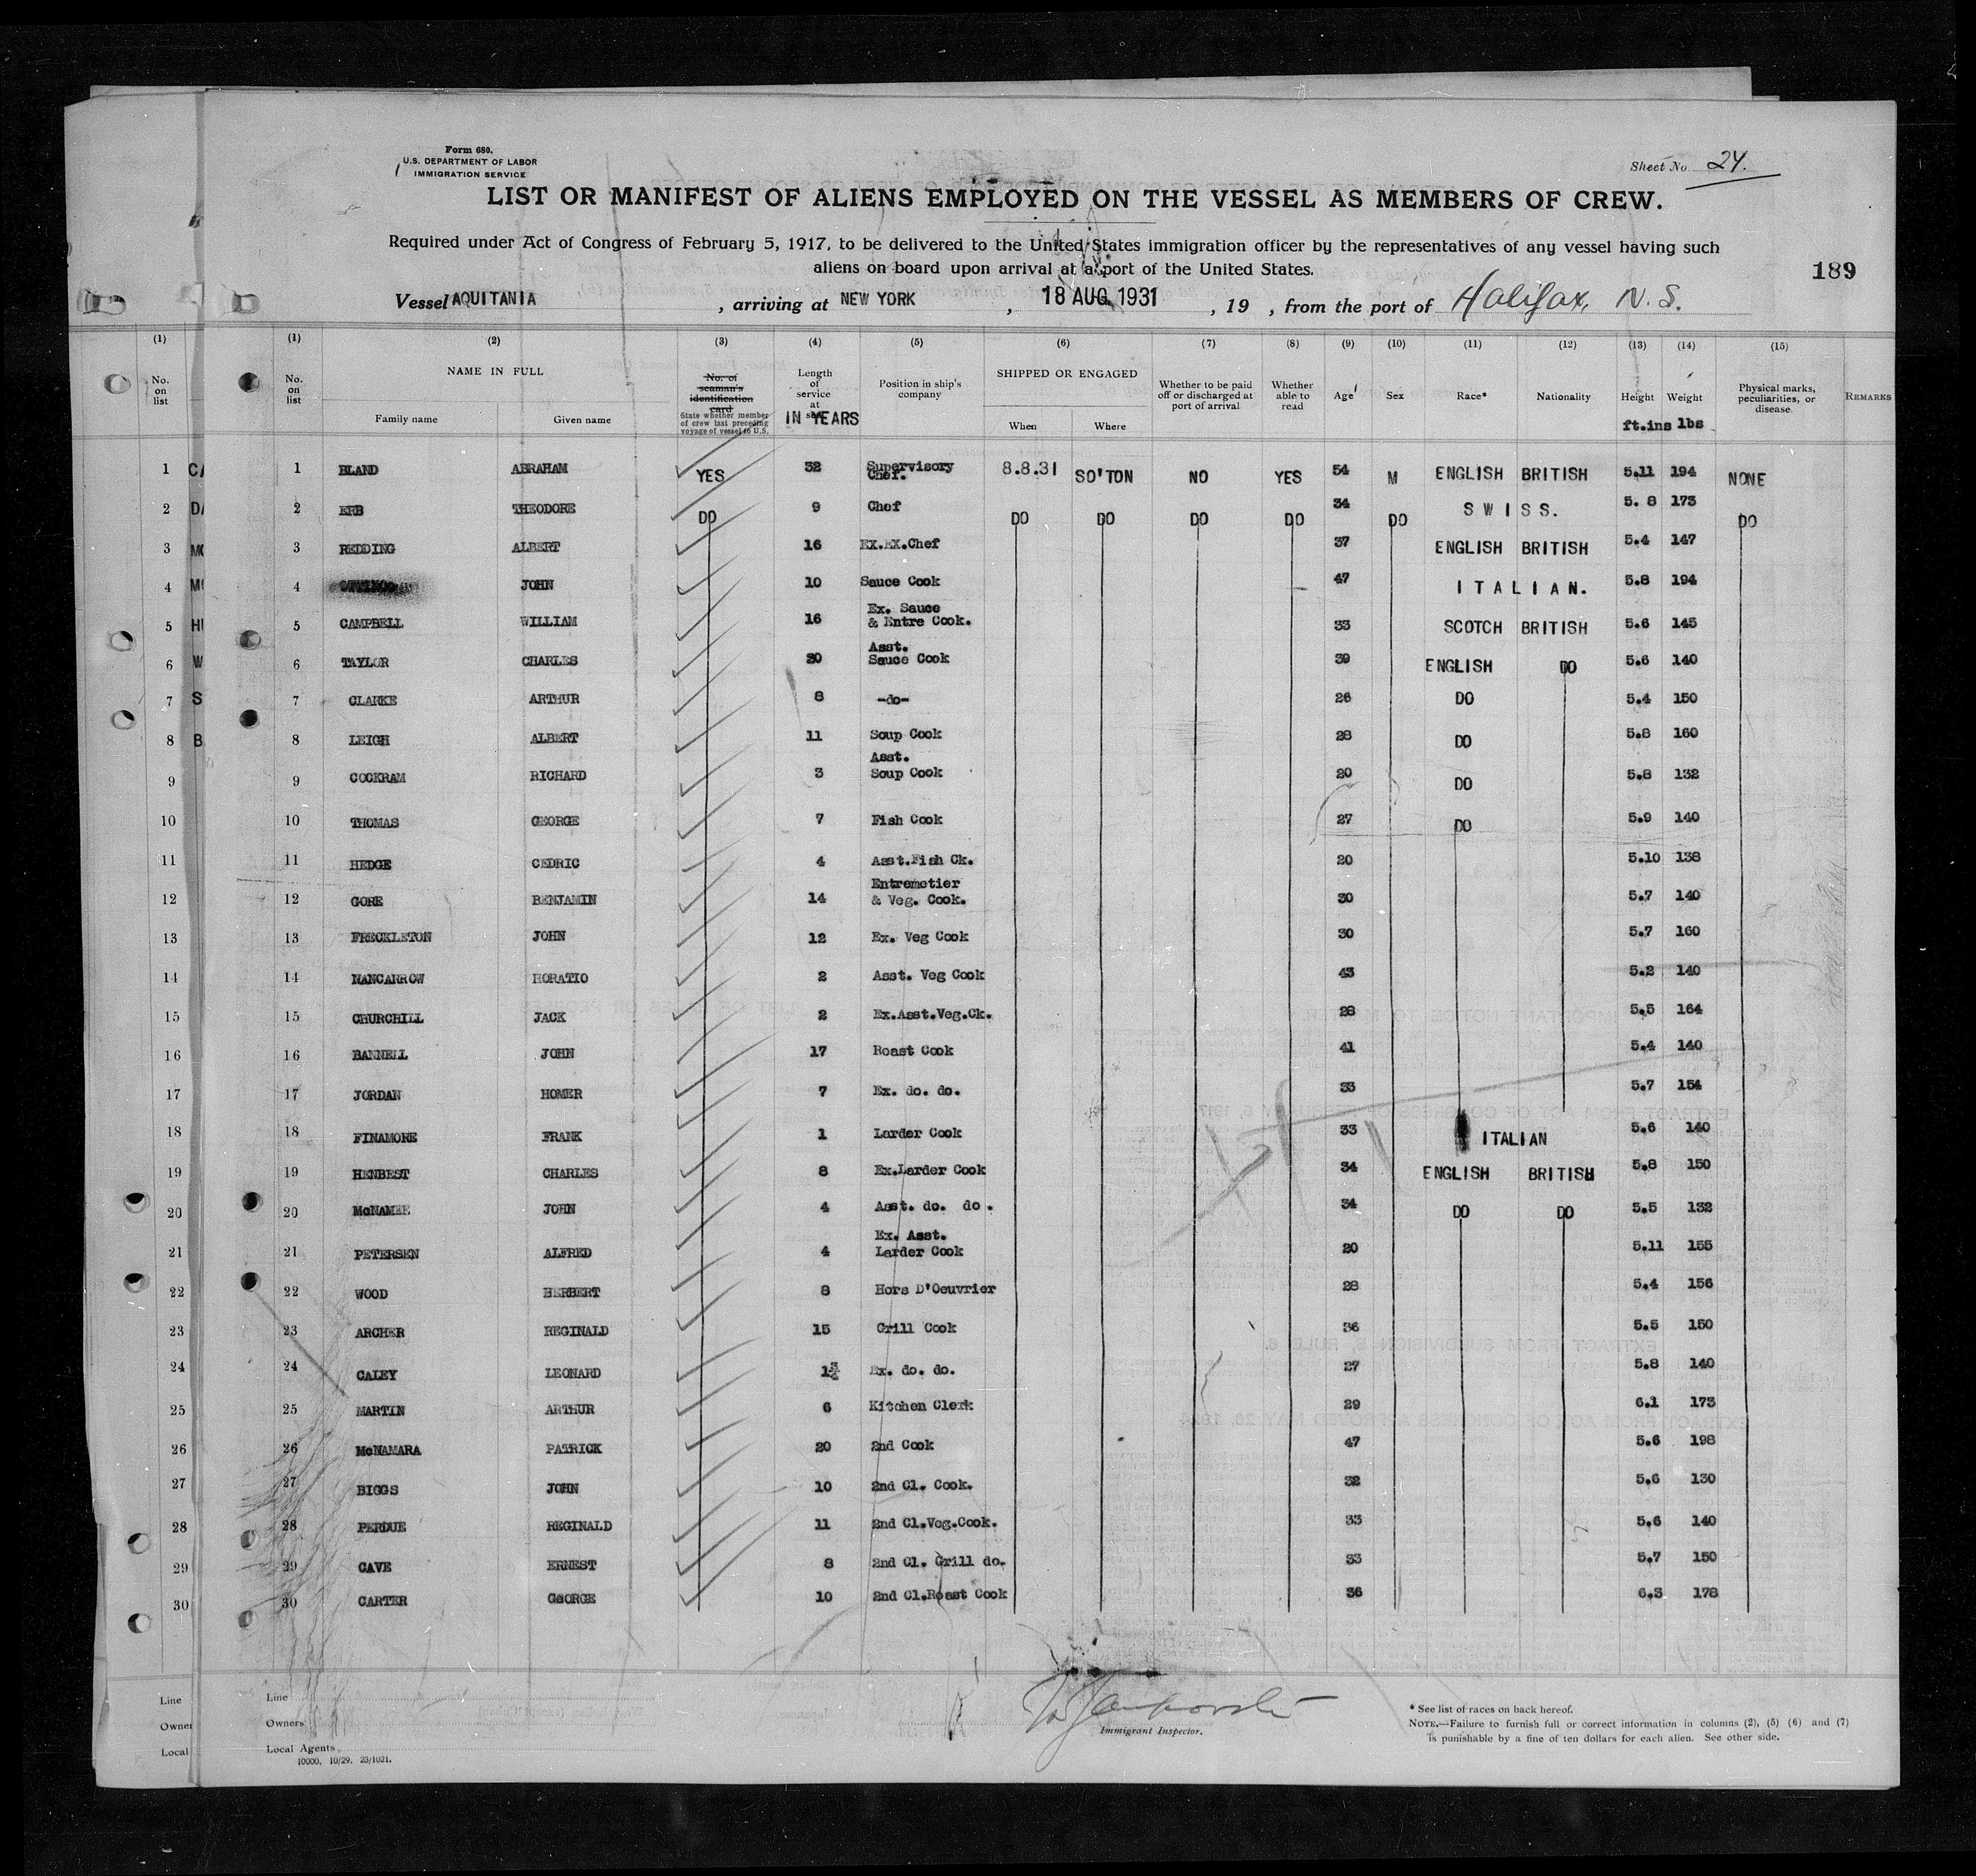 Form 680.
U.S. DEPARTMENT OF LABOR
IMMIGRATION SERVICE
Sheet No 24.
LIST OR MANIFEST OF ALIENS EMPLOYED ON THE VESSEL AS MEMBERS OF CREW.
Required under Act of Congress of February 5, 1917, to be delivered to the United States immigration officer by the representatives of any vessel having such
aliens on board upon arrival at a port of the United States.
189
Vessel AQUITANIA, arriving at NEW YORK, 18 AUG. 1931, 19 , from the port of Halifax, N. S.
(1) (1) (2) (3) (4) (5) (6) (7) (8) (9) (10) (11) (12) (13) (14) (15)
No. on list No. on list NAME IN FULL Family name Given name No. of seaman's identification card State whether member of crew last preceding voyage of vessel to U.S. Length of service at sea IN YEARS Position in ship's company SHIPPED OR ENGAGED When Where Whether to be paid off or discharged at port of arrival Whether able to read Age Sex Race* Nationality Height ft.ins Weight lbs Physical marks, peculiarities, or disease REMARKS
1 CA 1 BLAND ABRAHAM YES 32 Supervisory Chef. 8.8.31 SO'TON NO YES 54 M ENGLISH BRITISH 5.11 194 NONE
2 DA 2 ERB THEODORE DO 9 Chef DO DO DO DO 34 DO SWISS. 5.8 173 DO
3 MC 3 REDDING ALBERT 16 Ex.EX.Chef 37 ENGLISH BRITISH 5.4 147
4 MC 4 JOHN 10 Sauce Cook 47 ITALIAN. 5.8 194
5 HU 5 CAMPBELL WILLIAM 16 Ex. Sauce & Entre Cook. 33 SCOTCH BRITISH 5.6 145
6 W 6 TAYLOR CHARLES 20 Asst. Sauce Cook 39 ENGLISH DO 5.6 140
7 S 7 CLARKE ARTHUR 8 -do- 26 DO 5.4 150
8 B 8 LEIGH ALBERT 11 Soup Cook 28 DO 5.8 160
9 9 COCKRAM RICHARD 3 Asst. Soup Cook 20 DO 5.8 132
10 10 THOMAS GEORGE 7 Fish Cook 27 DO 5.9 140
11 11 HEDGE CEDRIC 4 Asst.Fish Ck. 20 5.10 138
12 12 GORE BENJAMIN 14 Entremetier & Veg. Cook. 30 5.7 140
13 13 FRECKLETON JOHN 12 Ex. Veg Cook 30 5.7 160
14 14 NANCARROW HORATIO 2 Asst. Veg Cook 43 5.2 140
15 15 CHURCHILL JACK 2 Ex.Asst.Veg.Ck. 28 5.5 164
16 16 BANNELL JOHN 17 Roast Cook 41 5.4 140
17 17 JORDAN HOMER 7 Ex. do. do. 33 5.7 154
18 18 FINAMORE FRANK 1 Larder Cook 33 ITALIAN 5.6 140
19 19 HENBEST CHARLES 8 Ex.Larder Cook 34 ENGLISH BRITISH 5.8 150
20 20 McNAMEE JOHN 4 Asst. do. do. 34 DO DO 5.5 132
21 21 PETERSEN ALFRED 4 Ex. Asst. Larder Cook 20 5.11 155
22 22 WOOD HERBERT 8 Hors D'Oeuvrier 28 5.4 156
23 23 ARCHER REGINALD 15 Grill Cook 36 5.5 150
24 24 CALEY LEONARD 1¾ Ex. do. do. 27 5.8 140
25 25 MARTIN ARTHUR 6 Kitchen Clerk 29 6.1 173
26 26 McNAMARA PATRICK 20 2nd Cook 47 5.6 198
27 27 BIGGS JOHN 10 2nd Cl. Cook. 32 5.6 130
28 28 PERDUE REGINALD 11 2nd Cl.Veg.Cook. 33 5.6 140
29 29 CAVE ERNEST 8 2nd Cl. Grill do. 33 5.7 150
30 30 CARTER GEORGE 10 2nd Cl.Roast Cook 36 6.3 178
Line Line
Owner Owners
Local Local Agents
10000, 10/29. 23/1021.
Immigrant Inspector.
* See list of races on back hereof.
NOTE.—Failure to furnish full or correct information in columns (2), (5) (6) and (7)
is punishable by a fine of ten dollars for each alien. See other side.